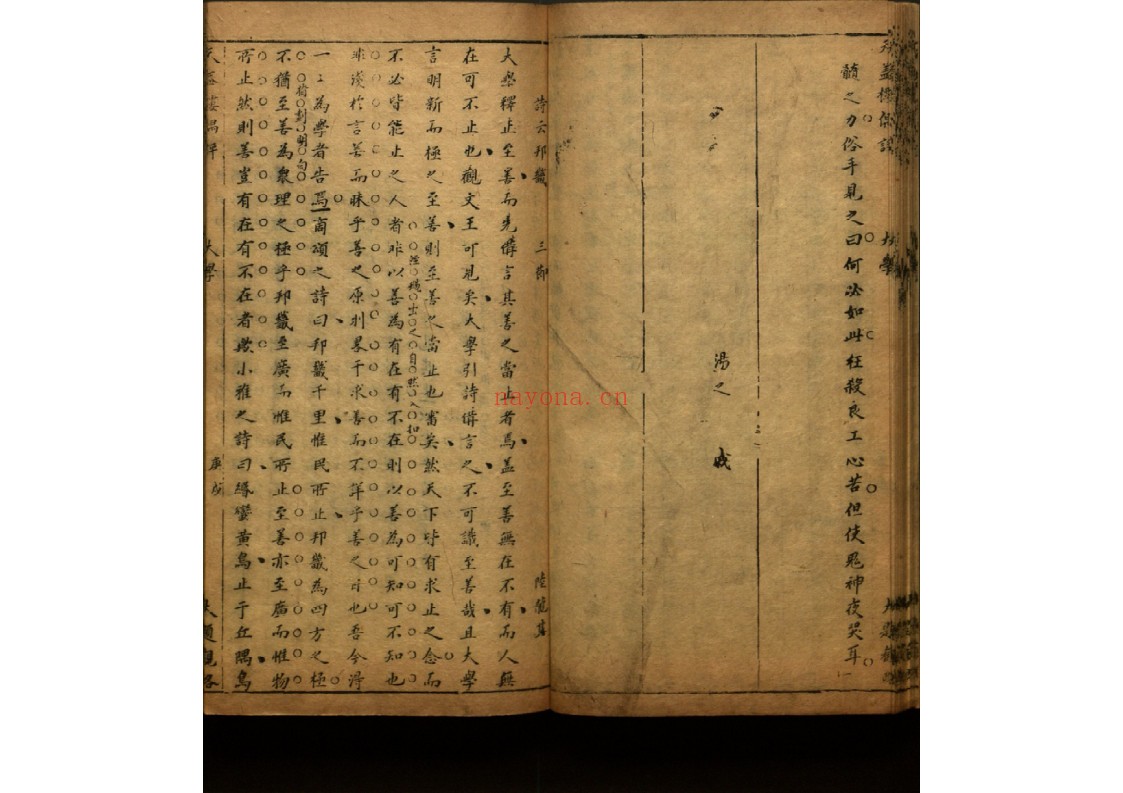 髓之力俗手見之曰何必如此枉殺良工心苦但使鬼神夜哭耳
湯之
詩云邦畿 三節
大學釋止至善而先僻言其善之當止者焉蓋至善無在不有而人無
在可不止也觀文王可見矣大學引詩僻言之不可識至善哉且大學
言明新而極之至善則至善之當止也審矣然天下皆有求止之念而
不必皆能止之人者非以善為有在有不在則以善為可知可不知也
非淺於言善而昧乎善之原則畧于求善而不詳乎善之也吾今得
一二為學者告焉商頌之詩曰邦畿千里惟民所止邦畿為四方之極
不猶至善為衆理之極乎邦畿至廣而惟民所止至善亦至廣而惟物
所止然則善豈有在有不在者歟小雅之詩曰緡蠻黃鳥止于丘隅鳥
大學
nayona.cn